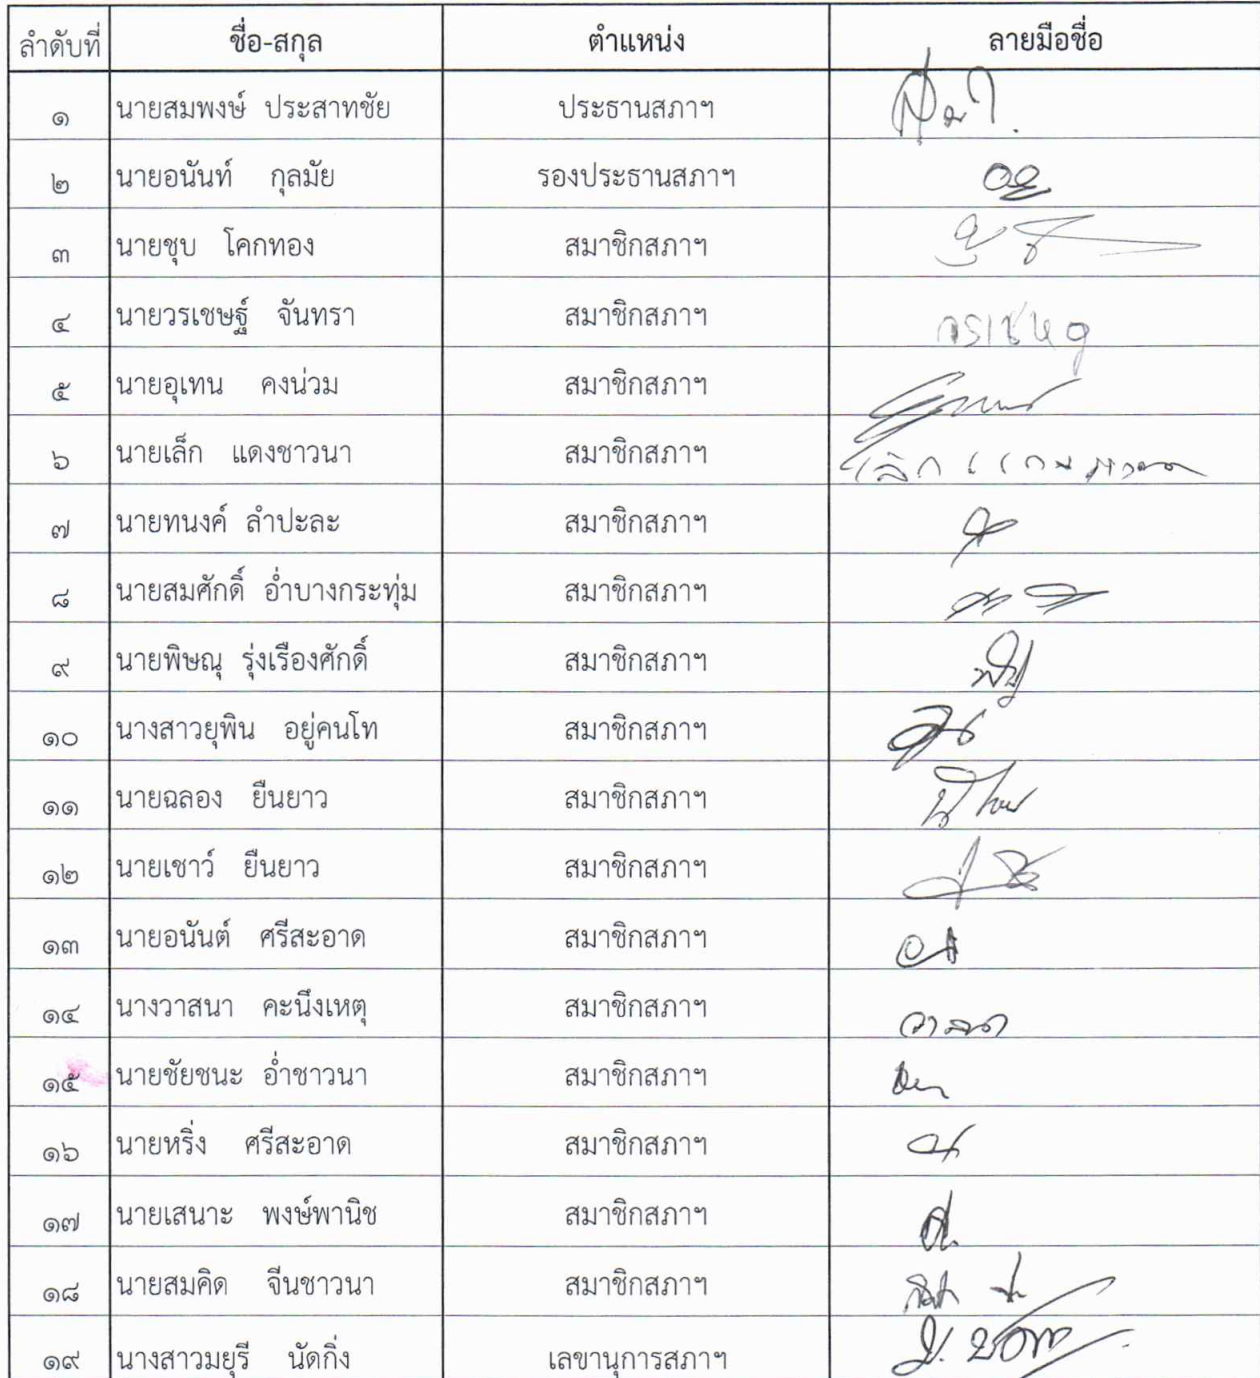 ลำดับที่ ชื่อ-สกุล ตำแหน่ง ลายมือชื่อ
๑ นายสมพงษ์ ประสาทชัย ประธานสภาฯ
๒ นายอนันท์ กุลมัย รองประธานสภาฯ
๓ นายชุบ โคกทอง สมาชิกสภาฯ
๔ นายวรเชษฐ์ จันทรา สมาชิกสภาฯ
๕ นายอุเทน คงน่วม สมาชิกสภาฯ
๖ นายเล็ก แดงชาวนา สมาชิกสภาฯ
๗ นายทนงค์ ลำปะละ สมาชิกสภาฯ
๘ นายสมศักดิ์ อ่ำบางกระทุ่ม สมาชิกสภาฯ
๙ นายพิษณุ รุ่งเรืองศักดิ์ สมาชิกสภาฯ
๑๐ นางสาวยุพิน อยู่คนโท สมาชิกสภาฯ
๑๑ นายฉลอง ยืนยาว สมาชิกสภาฯ
๑๒ นายเชาว์ ยืนยาว สมาชิกสภาฯ
๑๓ นายอนันต์ ศรีสะอาด สมาชิกสภาฯ
๑๔ นางวาสนา คะนึงเหตุ สมาชิกสภาฯ วาสนา
๑๕ นายชัยชนะ อ่ำชาวนา สมาชิกสภาฯ
๑๖ นายหริ่ง ศรีสะอาด สมาชิกสภาฯ
๑๗ นายเสนาะ พงษ์พานิช สมาชิกสภาฯ
๑๘ นายสมคิด จีนชาวนา สมาชิกสภาฯ
๑๙ นางสาวมยุรี นัดกิ่ง เลขานุการสภาฯ